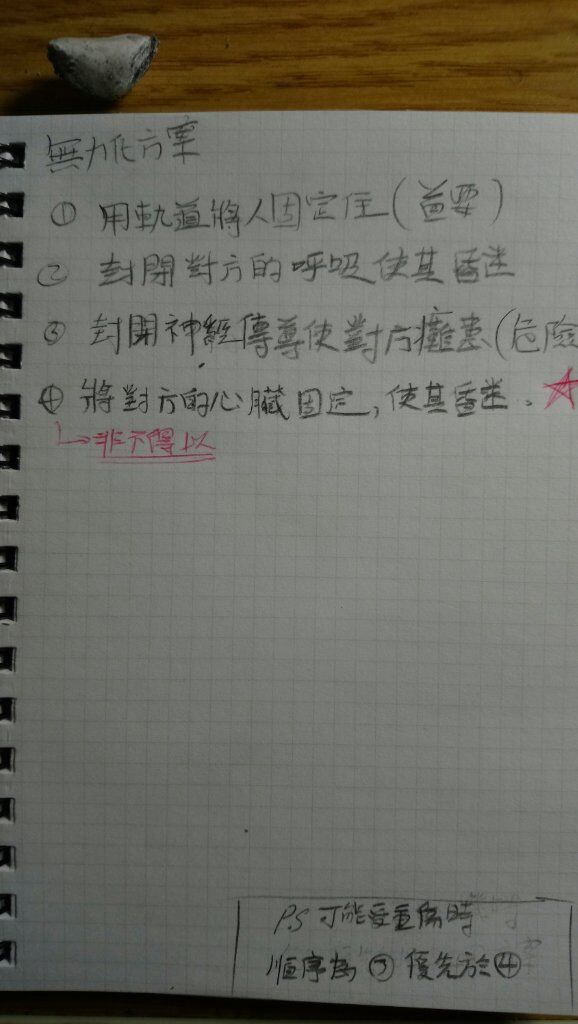 無力化方案
① 用軌道將人固定住(首要)
② 封閉對方的呼吸使其昏迷
③ 封閉神經傳導使對方癱瘓(危險
④ 將對方的心臟固定,使其昏迷. ☆
↳非不得以
P.S 可能受重傷時
順序為 ③ 優先於④